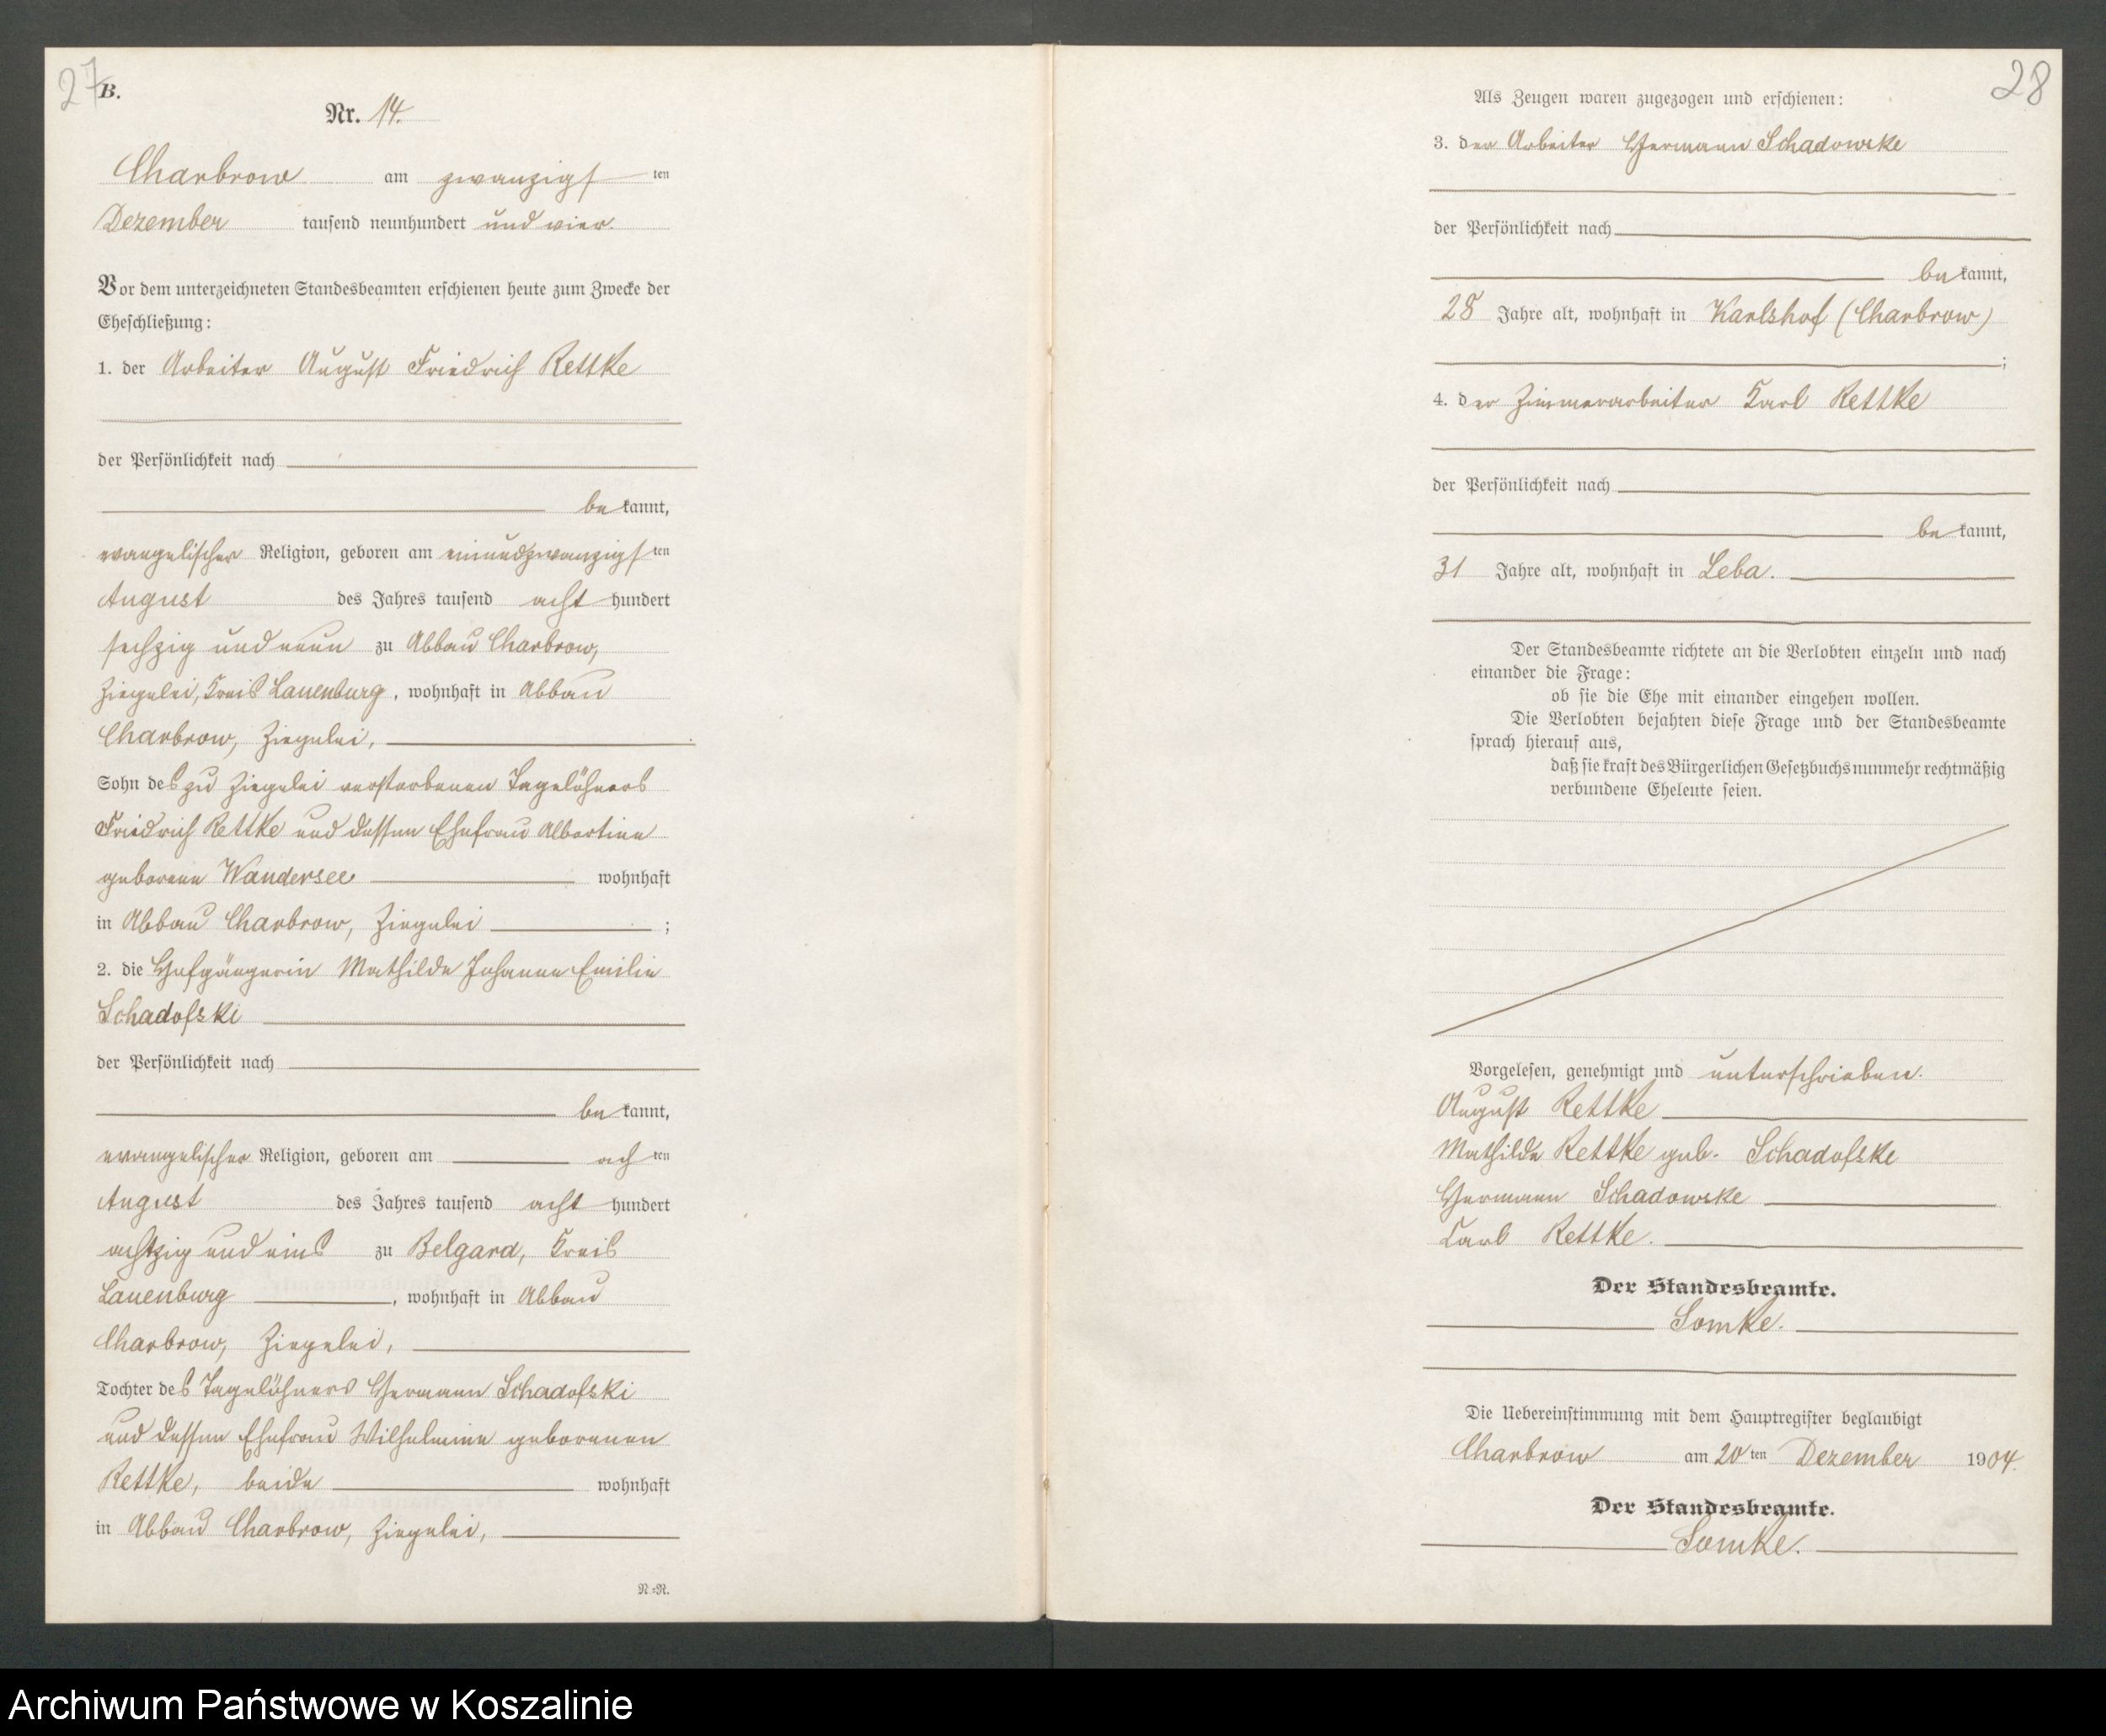 27
B.
Nr. 14.
Charbrow am zwanzigsten
Dezember tausend neunhundert und vier.
Vor dem unterzeichneten Standesbeamten erschienen heute zum Zwecke der
Eheschließung:
1. der Arbeiter August Friedrich Rettke
der Persönlichkeit nach
bekannt,
evangelischer Religion, geboren am einundzwanzigsten
August des Jahres tausend acht hundert
sechzig und neun zu Abbau Charbrow,
Ziegelei, Kreis Lauenburg, wohnhaft in Abbau
Charbrow, Ziegelei,
Sohn des zu Ziegelei verstorbenen Tagelöhners
Friedrich Rettke und dessen Ehefrau Albertine
geborene Wandersee wohnhaft
in Abbau Charbrow, Ziegelei ;
2. die Hofgängerin Mathilde Johanne Emilie
Schadofski
der Persönlichkeit nach
bekannt,
evangelischer Religion, geboren am achten
August des Jahres tausend acht hundert
achtzig und eins zu Belgard, Kreis
Lauenburg, wohnhaft in Abbau
Charbrow, Ziegelei,
Tochter des Tagelöhners Hermann Schadofski
und dessen Ehefrau Wilhelmine geborenen
Rettke, beide wohnhaft
in Abbau Charbrow, Ziegelei,
N=R.
28
Als Zeugen waren zugezogen und erschienen:
3. der Arbeiter Hermann Schadowske
der Persönlichkeit nach
bekannt,
28 Jahre alt, wohnhaft in Karlshof (Charbrow)
;
4. der Zimmerarbeiter Karl Rettke
der Persönlichkeit nach
bekannt,
31 Jahre alt, wohnhaft in Leba.
Der Standesbeamte richtete an die Verlobten einzeln und nach
einander die Frage:
ob sie die Ehe mit einander eingehen wollen.
Die Verlobten bejahten diese Frage und der Standesbeamte
sprach hierauf aus,
daß sie kraft des Bürgerlichen Gesetzbuchs nunmehr rechtmäßig
verbundene Eheleute seien.
Vorgelesen, genehmigt und unterschrieben.
August Rettke
Mathilde Rettke geb. Schadofske
Hermann Schadowske
Karl Rettke.
Der Standesbeamte.
Somke.
Die Uebereinstimmung mit dem Hauptregister beglaubigt
Charbrow am 20ten Dezember 1904.
Der Standesbeamte.
Somke.
Archiwum Państwowe w Koszalinie